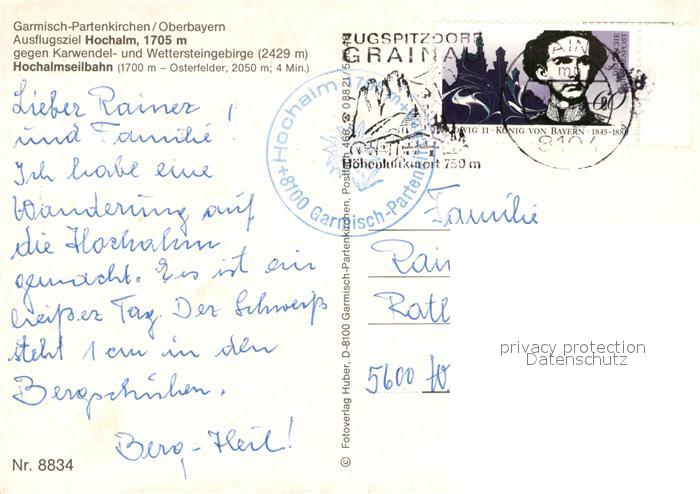 Garmisch-Partenkirchen/Oberbayern
Ausflugsziel Hochalm, 1705 m
gegen Karwendel- und Wettersteingebirge (2429 m)
Hochalmseilbahn (1700 m – Osterfelder, 2050 m; 4 Min.)
Lieber Rainer,
und Familie
Ich habe eine
Wanderung auf
die Hochalm
gemacht. Es ist ein
heißer Tag. Der Schweiß
steht 1 cm in den
Bergschuhen.
Berg-Heil!
Nr. 8834
© Fotoverlag Huber, D-8100 Garmisch-Partenkirchen, Postfach 466, ☎ 08821/
ZUGSPITZDORF
GRAINAU
Höhenluftkurort 750 m
+Hochalm 170
+8100 Garmisch-Partenki
WIG II · KÖNIG VON BAYERN · 1845-188
8104
Familie
Rain
5600
privacy protection
Datenschutz